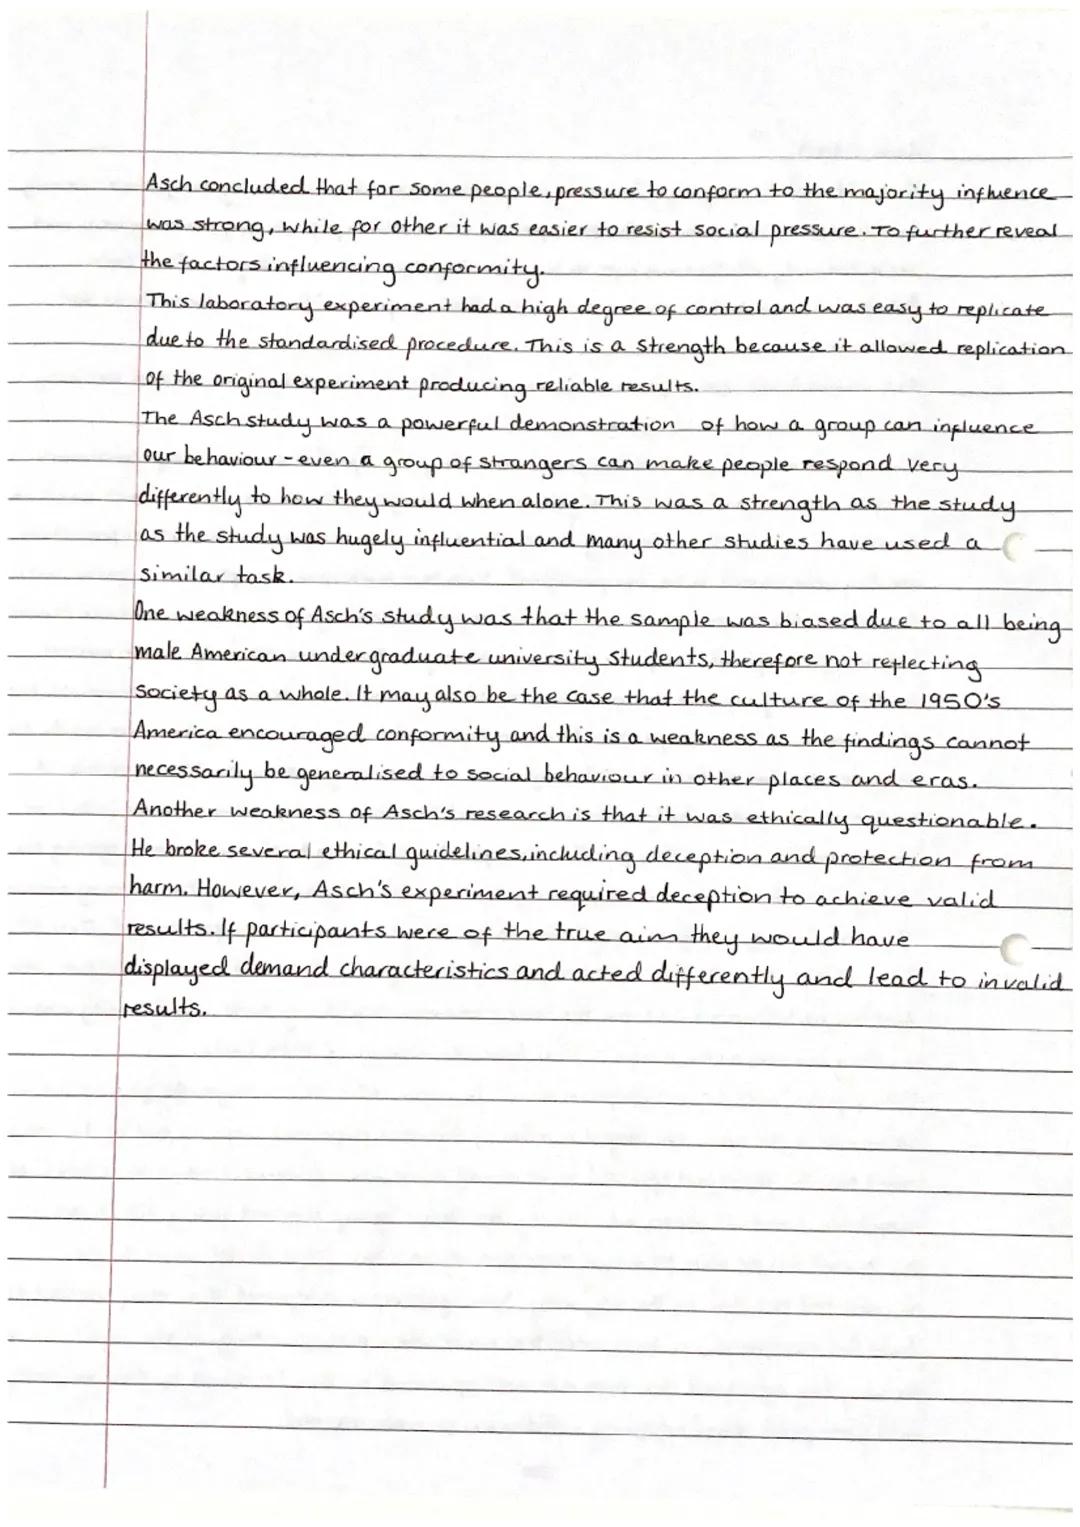 Asch concluded that for some people, pressure to conform to the majority influence
was strong, while for other it was easier to resist social pressure. To further reveal
the factors influencing conformity.
This laboratory experiment had a high degree of control and was easy to replicate
due to the standardised procedure. This is a strength because it allowed replication
of the original experiment producing reliable results.
The Asch study was a powerful demonstration of how a group can influence
our behaviour - even a group of strangers can make people respond very
differently to how they would when alone. This was a strength as the study
as the study was hugely influential and many other studies have used a
similar task.
One weakness of Asch's study was that the sample was biased due to all being
male American undergraduate university students, therefore not reflecting
society as a whole. It may also be the case that the culture of the 1950's
America encouraged conformity and this is a weakness as the findings cannot
necessarily be generalised to social behaviour in other places and eras.
Another weakness of Asch's research is that it was ethically questionable.
He broke several ethical guidelines, including deception and protection from
harm. However, Asch's experiment required deception to achieve valid
results. If participants were of the true aim they would have
displayed demand characteristics and acted differently and lead to invalid
results.